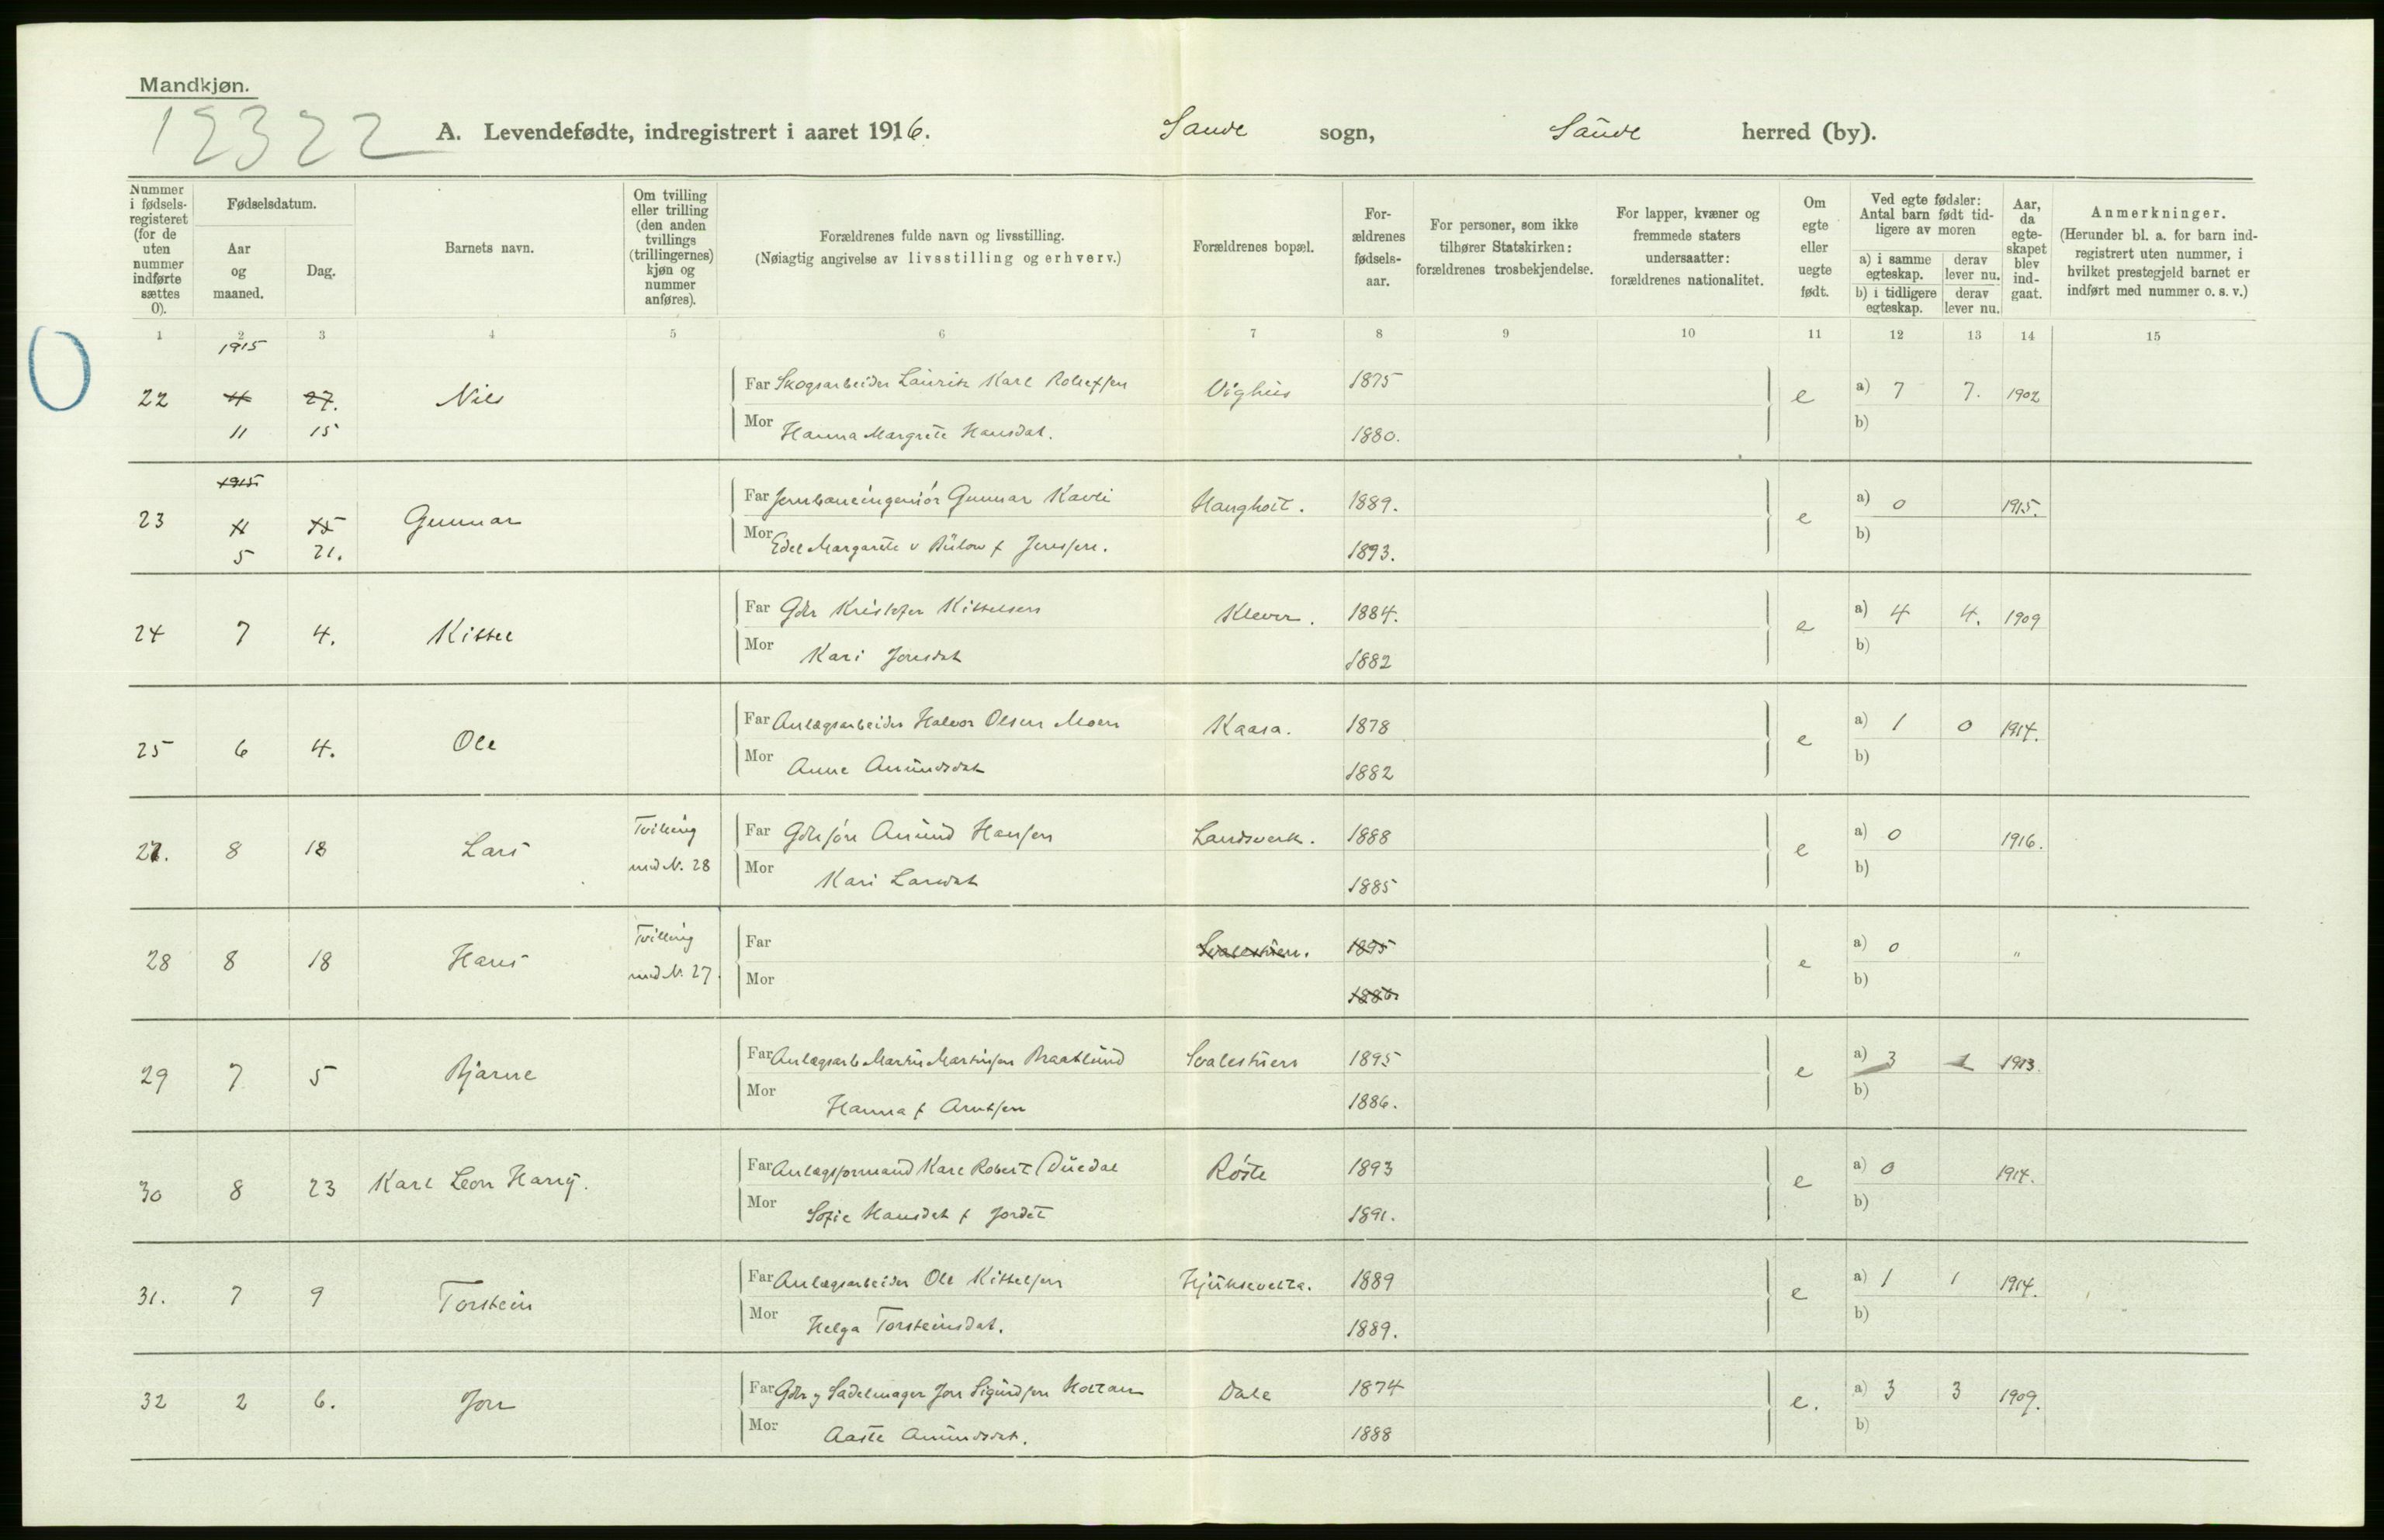 Mandkjøn.
12322
A. Levendefødte, indregistrert i aaret 1916. Saude sogn, Saude herred (by).
Nummer i fødselsregisteret (for de uten nummer indførte sættes 0).
Fødselsdatum.
Aar og maaned.
Dag.
Barnets navn.
Om tvilling eller trilling (den anden tvillings (trillingernes) kjøn og nummer anføres).
Forældrenes fulde navn og livsstilling.
(Nøiagtig angivelse av livsstilling og erhverv.)
Forældrenes bopæl.
Forældrenes fødselsaar.
For personer, som ikke tilhører Statskirken: forældrenes trosbekjendelse.
For lapper, kvæner og fremmede staters undersaatter: forældrenes nationalitet.
Om egte eller uegte født.
Ved egte fødsler: Antal barn født tidligere av moren
a) i samme egteskap. derav lever nu.
b) i tidligere egteskap. derav lever nu.
Aar, da egteskapet blev indgaat.
Anmerkninger.
(Herunder bl. a. for barn indregistrert uten nummer, i hvilket prestegjeld barnet er indført med nummer o. s. v.)
1 2 3 4 5 6 7 8 9 10 11 12 13 14 15
0
1915
22 11 27. Nils Far Skogsarbeider Laurits Karl Rollefsen Vighus 1875 e a) 7 7. 1902
11 15 Mor Hanna Margrete Hansdat. 1880. b)
1915
23 11 15 Gunnar Far Jernbaneingeniør Gunnar Kavli Haugholt. 1889. e a) 0 1915.
5 21. Mor Edel Margarete v Bülow f Jenssen. 1893. b)
24 7 4. Kittel Far Gbr Kristofer Kittelsen Klever. 1884. e a) 4 4. 1909
Mor Kari Jonsdat 1882 b)
25 6 4. Ole Far Anlægsarbeider Halvor Olsen Moen Kaasa. 1878 e a) 1 0 1914.
Mor Anne Amundsdat 1882 b)
27. 8 18 Lars Tvilling Far Gbrsøn Amund Hansen Landsverk. 1888 e a) 0 1916.
med N. 28 Mor Kari Larsdat 1885 b)
28 8 18 Hans Tvilling Far Svalestuen. 1895 e a) 0 "
med N. 27. Mor 1886 b)
29 7 5 Bjarne Far Anlægsarb Martin Martinsen Braatlund Svalestuen 1895 e a) 3 1 1913.
Mor Hanna f Arntsen 1886. b)
30 8 23 Karl Leon Harry. Far Anlægsformand Karl Robert Duedal Røste 1893 e a) 0 1914.
Mor Sofie Hansdat f Jordet 1891. b)
31. 7 9 Torstein Far Anlægsarbeider Ole Kittelsen Hjuksevelta. 1889 e a) 1 1 1914.
Mor Helga Torsteinsdat. 1889. b)
32 2 6. Jon Far Gbr og Sadelmager Jon Sigurdsen Holtan Dale 1874 e. a) 3 3 1909.
Mor Aaste Amundsdat. 1888 b)